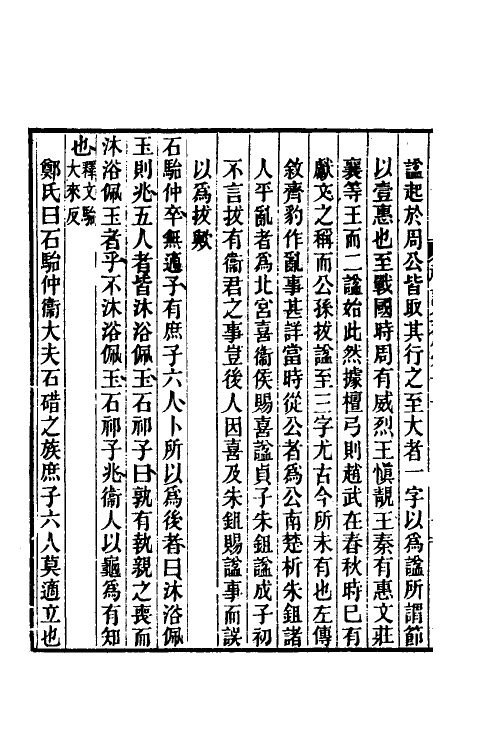 諡起於周公皆取其行之至大者一字以爲諡所謂節
以壹惠也至戰國時周有威烈王愼靚王秦有惠文莊
襄等王而二諡始此然據檀弓則趙武在春秋時已有
獻文之稱而公孫拔諡至三字尤古今所未有也左傳
敘齊豹作亂事甚詳當時從公者爲公南楚析朱鉏諸
人平亂者爲北宮喜衞侯賜喜諡貞子朱鉏諡成子初
不言拔有衞君之事豈後人因喜及朱鉏賜諡事而誤
以爲拔歟
石駘仲卒無適子有庶子六人卜所以爲後者曰沐浴佩
玉則兆五人者皆沐浴佩玉石祁子曰孰有執親之喪而
沐浴佩玉者乎不沐浴佩玉石祁子兆衞人以龜爲有知
也釋文駘大來反
鄭氏曰石駘仲衞大夫石碏之族庶子六人莫適立也